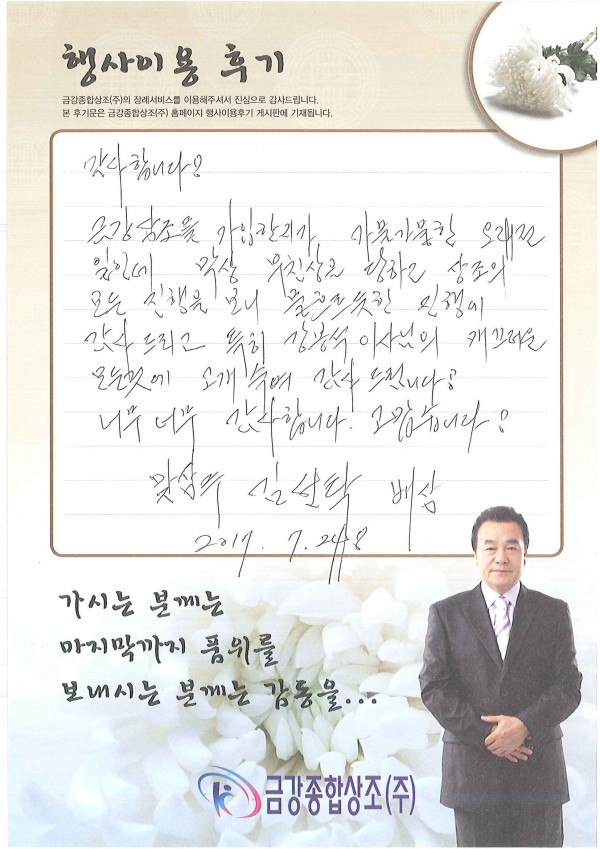 행사이용 후기
금강종합상조(주)의 장례서비스를 이용해주셔서 진심으로 감사드립니다.
본 후기문은 금강종합상조(주) 홈페이지 행사이용후기 게시판에 기재됩니다.
감사합니다!
금강상조을 가입한지가 가물가물한 오래전
일인데 막상 부친상을 당하고 상조의
모든 진행을 보니 물흐르듯한 진행이
감사 드리고 특히 강봉석 이사님의 매끄러운
모든것에 고개 숙여 감사 드립니다!
너무 너무 감사합니다. 고맙습니다!
맏상주 김 배상
2017. 7. 24
가시는 분께는
마지막까지 품위를
보내시는 분께는 감동을...
금강종합상조(주)